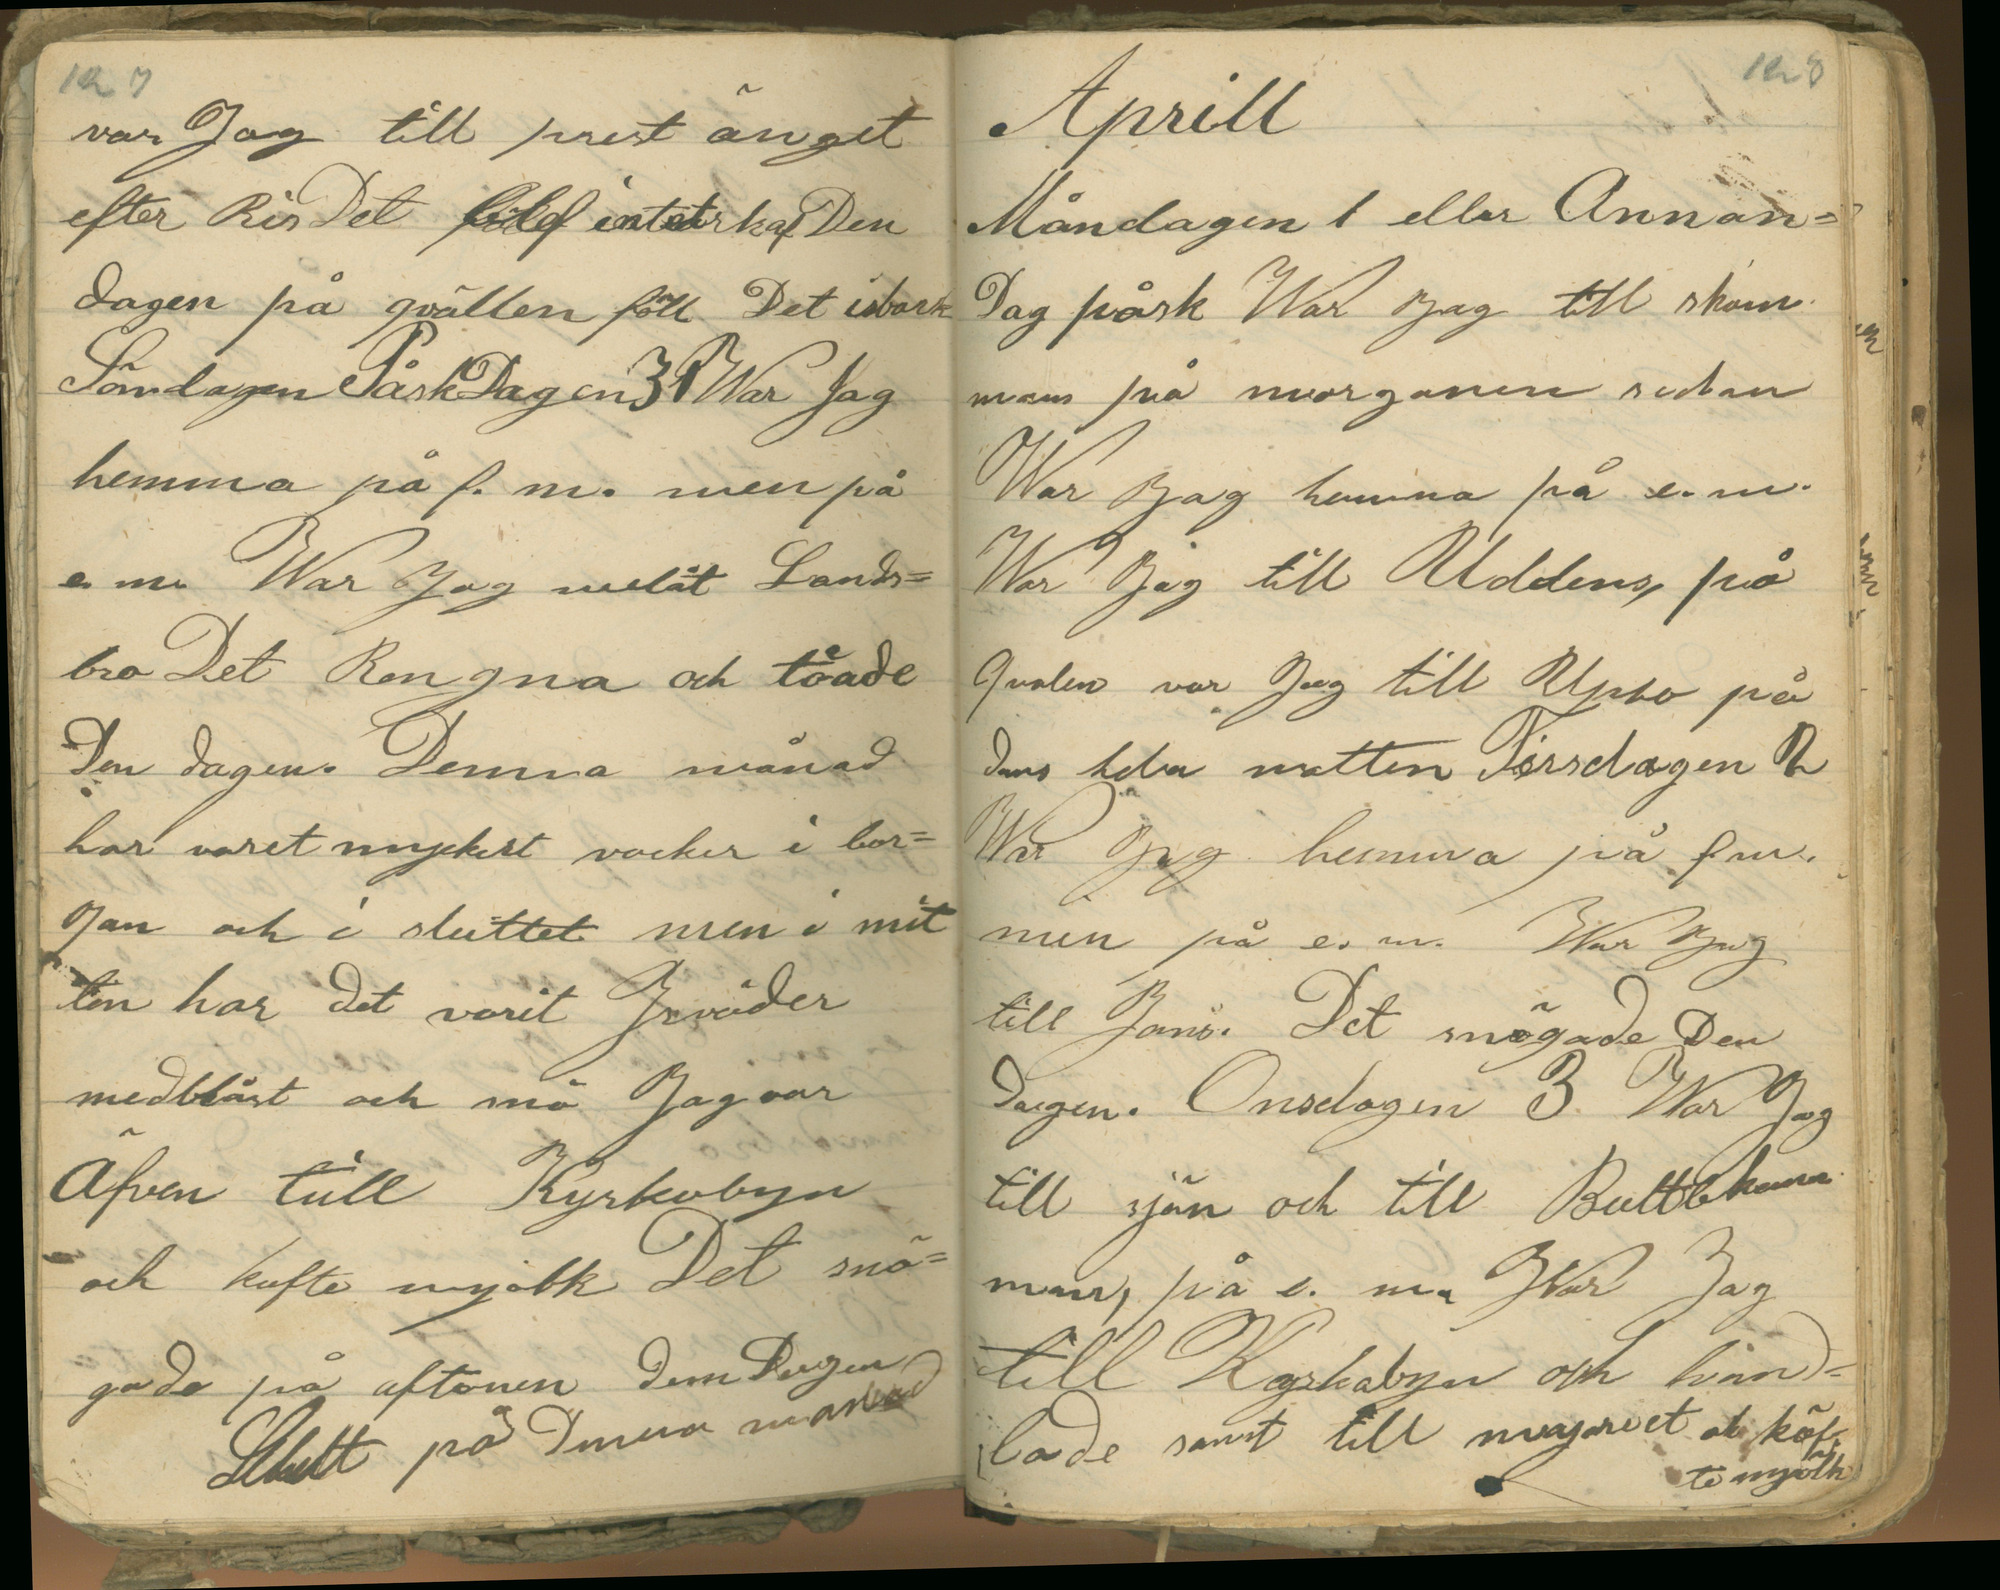 127
var Jag till prest änget
efter Ris Det Den
dagen på qvällen föll Det isbark
Söndagen Påsk Dagen 31 War Jag
hemma på f. m. men på
e. m. War Jag melåt Lands=
bro Det Rengna och töade
Den dagen. Denna månad
har varet myckert vacker i bör=
jan och i sluttet men i mit
ten har det varit Yrväder
medblåst och snö Jag var
Äfven till Kyrkobyn
och kufte mjölk Det snö=
gade på aftonen dem Dagen
Slutt på Denna månad
128
Aprill
Måndagen 1 eller Annan=
Dag påsk War Jag till skom
mans på morgonen sedan
War Jag hemma på e. m.
War Jag till Uddens, på
qvalen var Jag till Upbo på
dans hela natten Tirsdagen 2
War Jag hemma på f m.
men på e. m. War Jag
till Jans. Det snögade Den
dagen. Onsdagen 3 War Jag
till sjön och till
mans, på e. m. War Jag
till Kyrkabyn och hand=
lade samt till mejeriet ok köf=
te mjölk